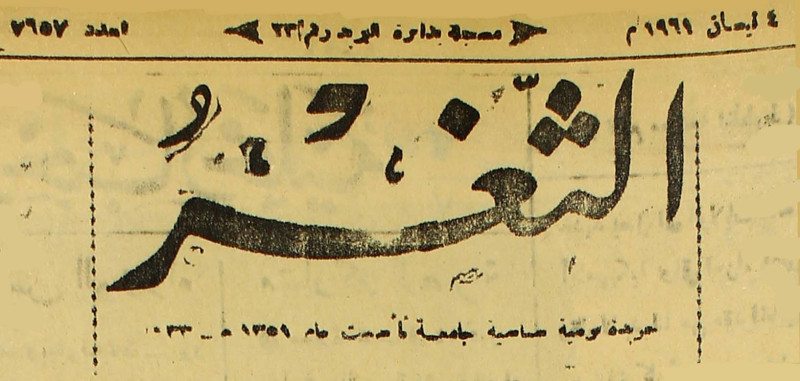 ٤ نيسان ١٩٦١ م مسجلة بدائرة البريد رقم ٢٣ العدد ٧٦٥٧
الثَّغْرُ
جريدة يومية سياسية جامعة تأسست عام ١٣٥١ هـ ـ ٩٣٣